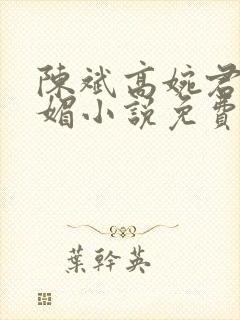 陳斌高婉君
媚小說免費
葉幹英